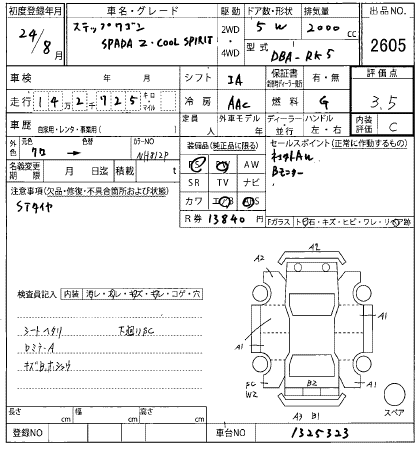 初度登録年月 車名・グレード 駆動 ドア数・形状 排気量 出品NO.
24/8月 ステップワゴン SPADA Z・COOL SPIRIT 2WD 4WD 5W 2000cc 2605
型式 DBA-RK5
車検 年 月 シフト IA 保証書 有・無 評価点 3.5
走行 142千725 キロ・マイル 冷房 AAC 燃料 G
車歴 自家用・レンタ・事業用( ) 定員 人 外車モデル 年 ディーラー 並行 ハンドル 左・右 内装評価 C
外色 元色 クロ 色替 カラーNO NH812P
名義変更期限 月 日迄 積載 t
装備品(純正品に限る)
PS PW AW
SR TV ナビ
カワ エアB ABS
R券 13840円
セールスポイント(正常に作動するもの)
Bモニター
注意事項(欠品・修復・不具合箇所および状態)
STタイヤ
Fガラス トビ石・キズ・ヒビ・ワレ・リペア跡
検査員記入 内装 汚レ・スレ・キズ・キレ・コゲ・穴
シートヘタリ 下廻りSC
キズB、ホシュウ
A2
A2
A1
A1
A1
A1
SC
W2
B2
A3 B1
スペア
長さ cm 幅 cm 高さ cm
登録NO 車台NO 1325323